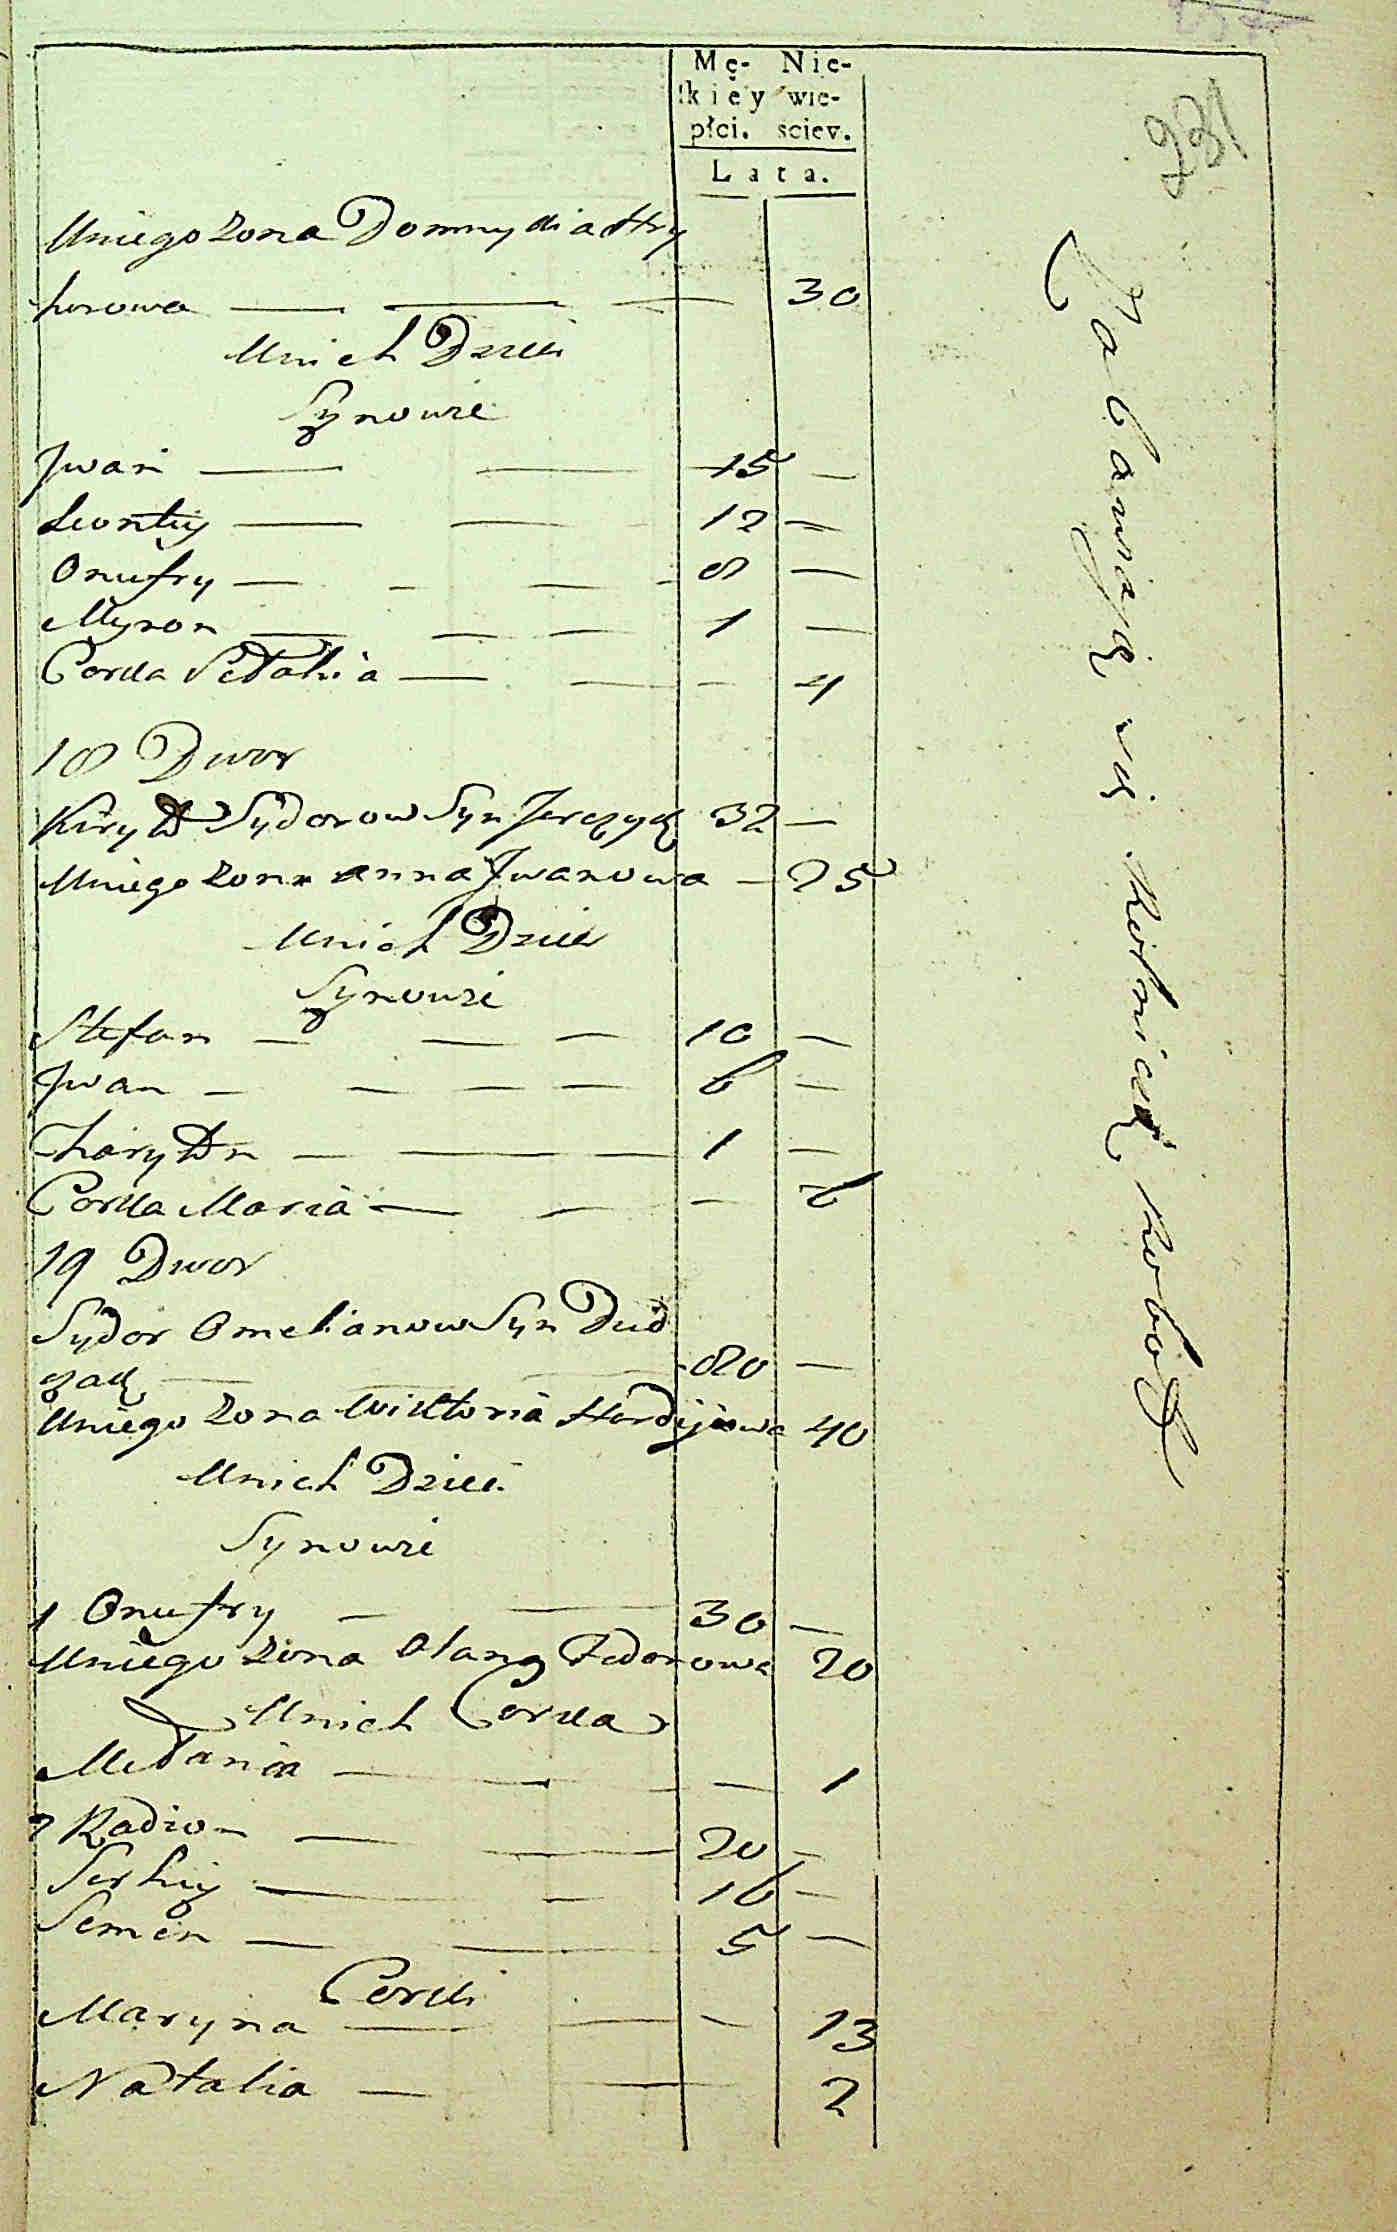 231
Mę- Nie-
skiey wie-
płci. sciey.
Lata.
Uniego zona Domnydia Hry
horowa — — — 30
Unich Dzieci
Synowie
Jwan — — 15 —
Leontiy — — 12 —
Onufry — — — 8 —
Myron — — — 1 —
Corka — — — 4
18 Dwor
Kiryło Sydorow Syn 32 —
Uniego zona anna Jwanowa — 25
Unich Dzieci
Synowie
Stefan — — — 10 —
Jwan — — — — 6 —
Haryton — — — 1 —
Corka Maria — — — 6
19 Dwor
Sydor Omelianow Syn Dud
czak — — — 80 —
Uniego zona Wiktoria Hordijowa 40
Unich Dzieci
Synowie
1 Onufry — — 30 —
Uniego zona Olena Fedorowa 20
Unich Corka
Mełania — — — — 1
2 Radion — — 20 —
Serhiy — — 16 —
Semen — — 5 —
Corki
Maryna — — — 13
Natalia — — 2
Zabawiaią się Rolniczą robotą